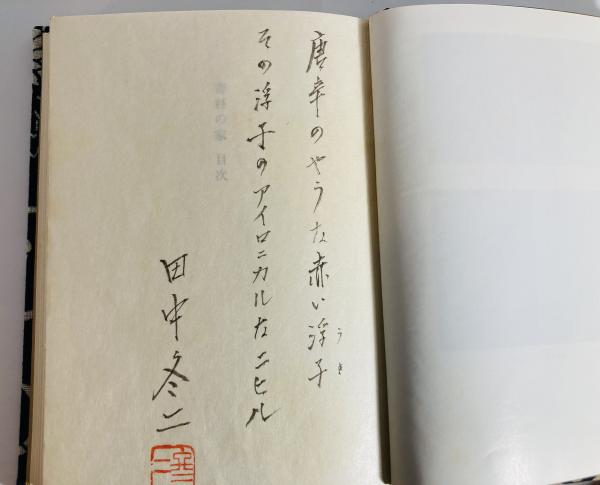 唐辛のやうな赤い浮子
うき
その浮子のアイロニカルなニヒル
田中冬二
目次